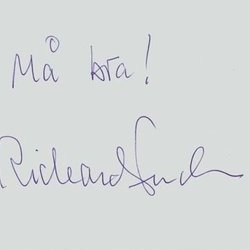 Må bra!
Richard